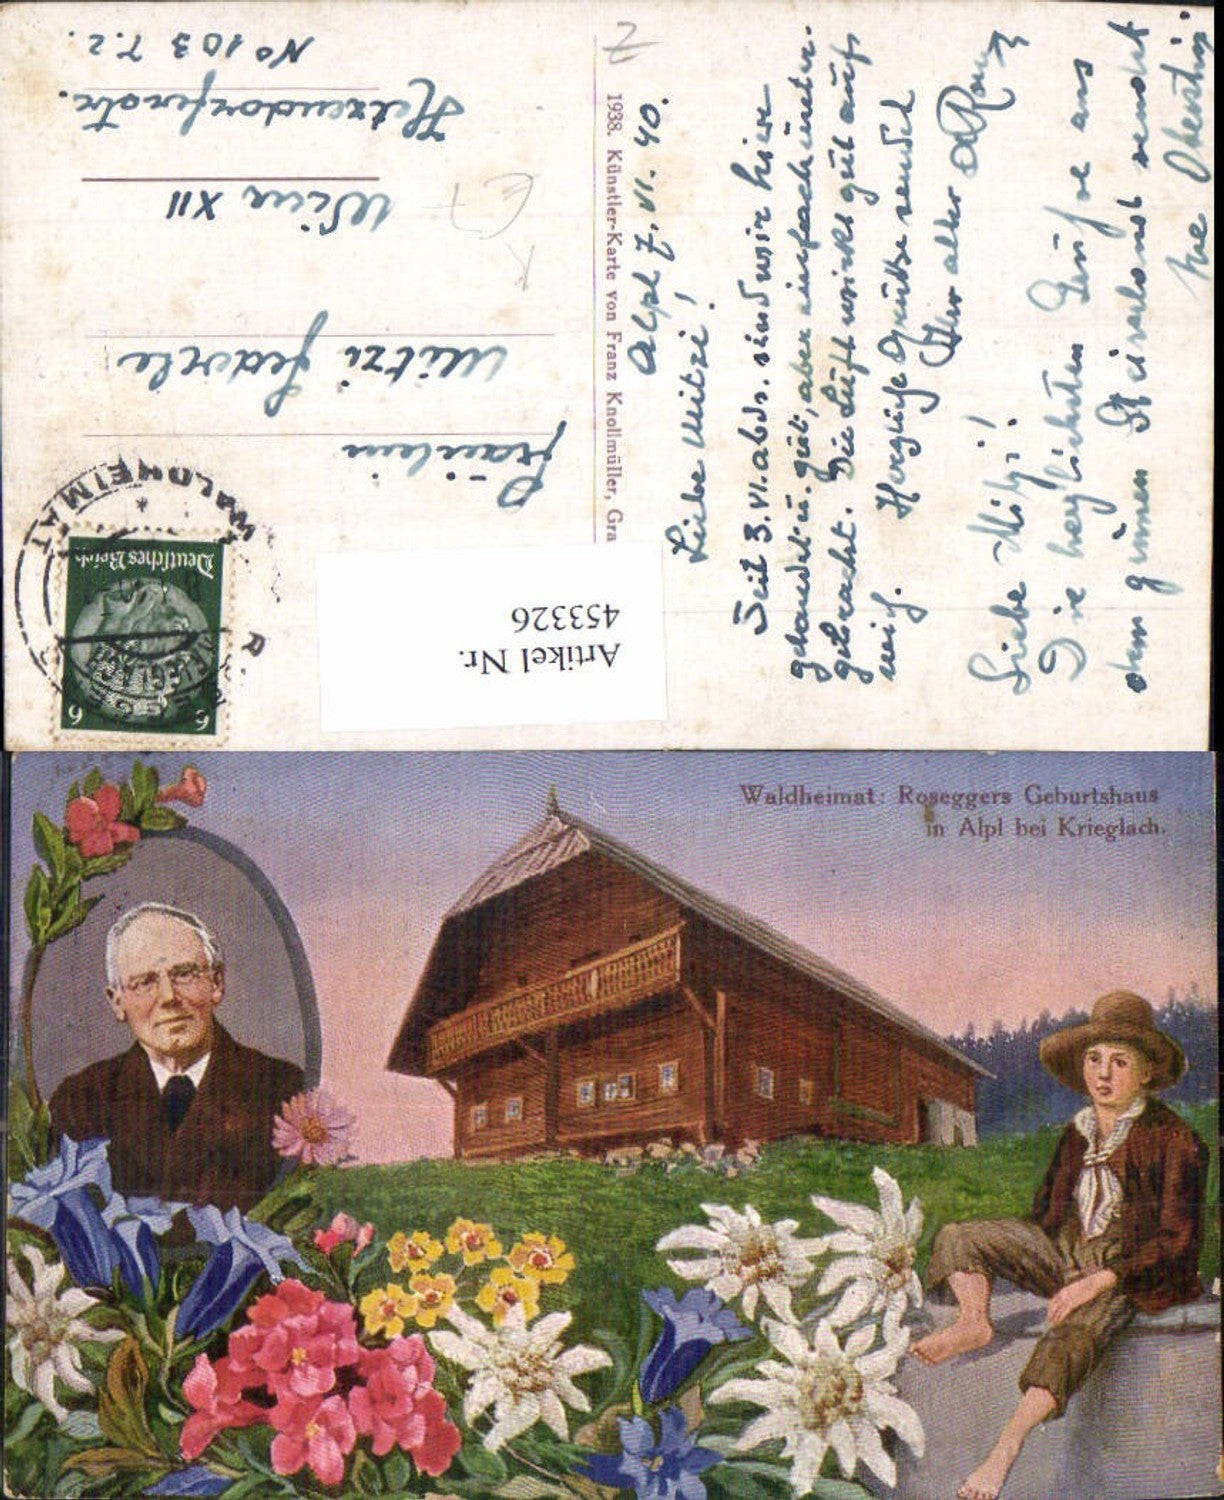 Fräulein
Mitzi
Wien XII
Hetzendorferstr.
No 103 T.2.
Deutsches Reich
6 6
WALDHEIMAT
1938. Künstler-Karte von Franz Knollmüller, Gra
Artikel Nr.
453326
Alpl 7. VI. 40.
Liebe Mitzi!
Seit 3. VI. abds. sind wir hier
gut, aber einfach unter-
gebracht. Die Luft wirkt gut aufs
Herzliche Grüße sendet
Ihr alter
Liebe Mitzi!
Die herzlichsten Grüße aus
dem grünen Steirerland sendet
Waldheimat: Roseggers Geburtshaus
in Alpl bei Krieglach.